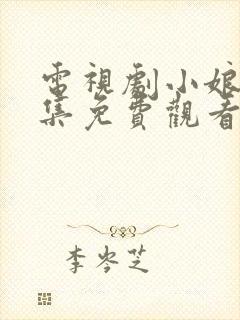 電視劇小娘
集免費觀看
李岑芝